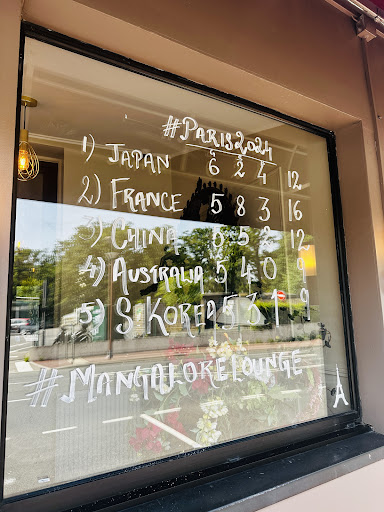 #PARIS2024
1) JAPAN 6 2 4 12
2) FRANCE 5 8 3 16
3) CHINA 5 5 2 12
4) AUSTRALIA 5 4 0 9
5) S KOREA 5 3 1 9
#MANGALORELOUNGE